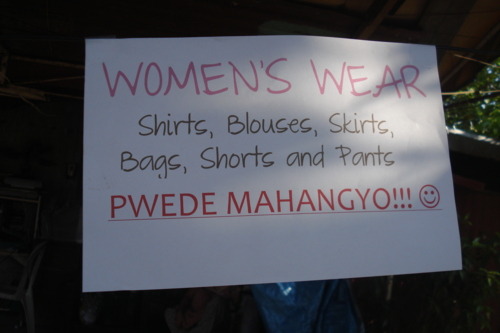 WOMEN'S WEAR
Shirts, Blouses, Skirts,
Bags, Shorts and Pants
PWEDE MAHANGYO!!! ☺